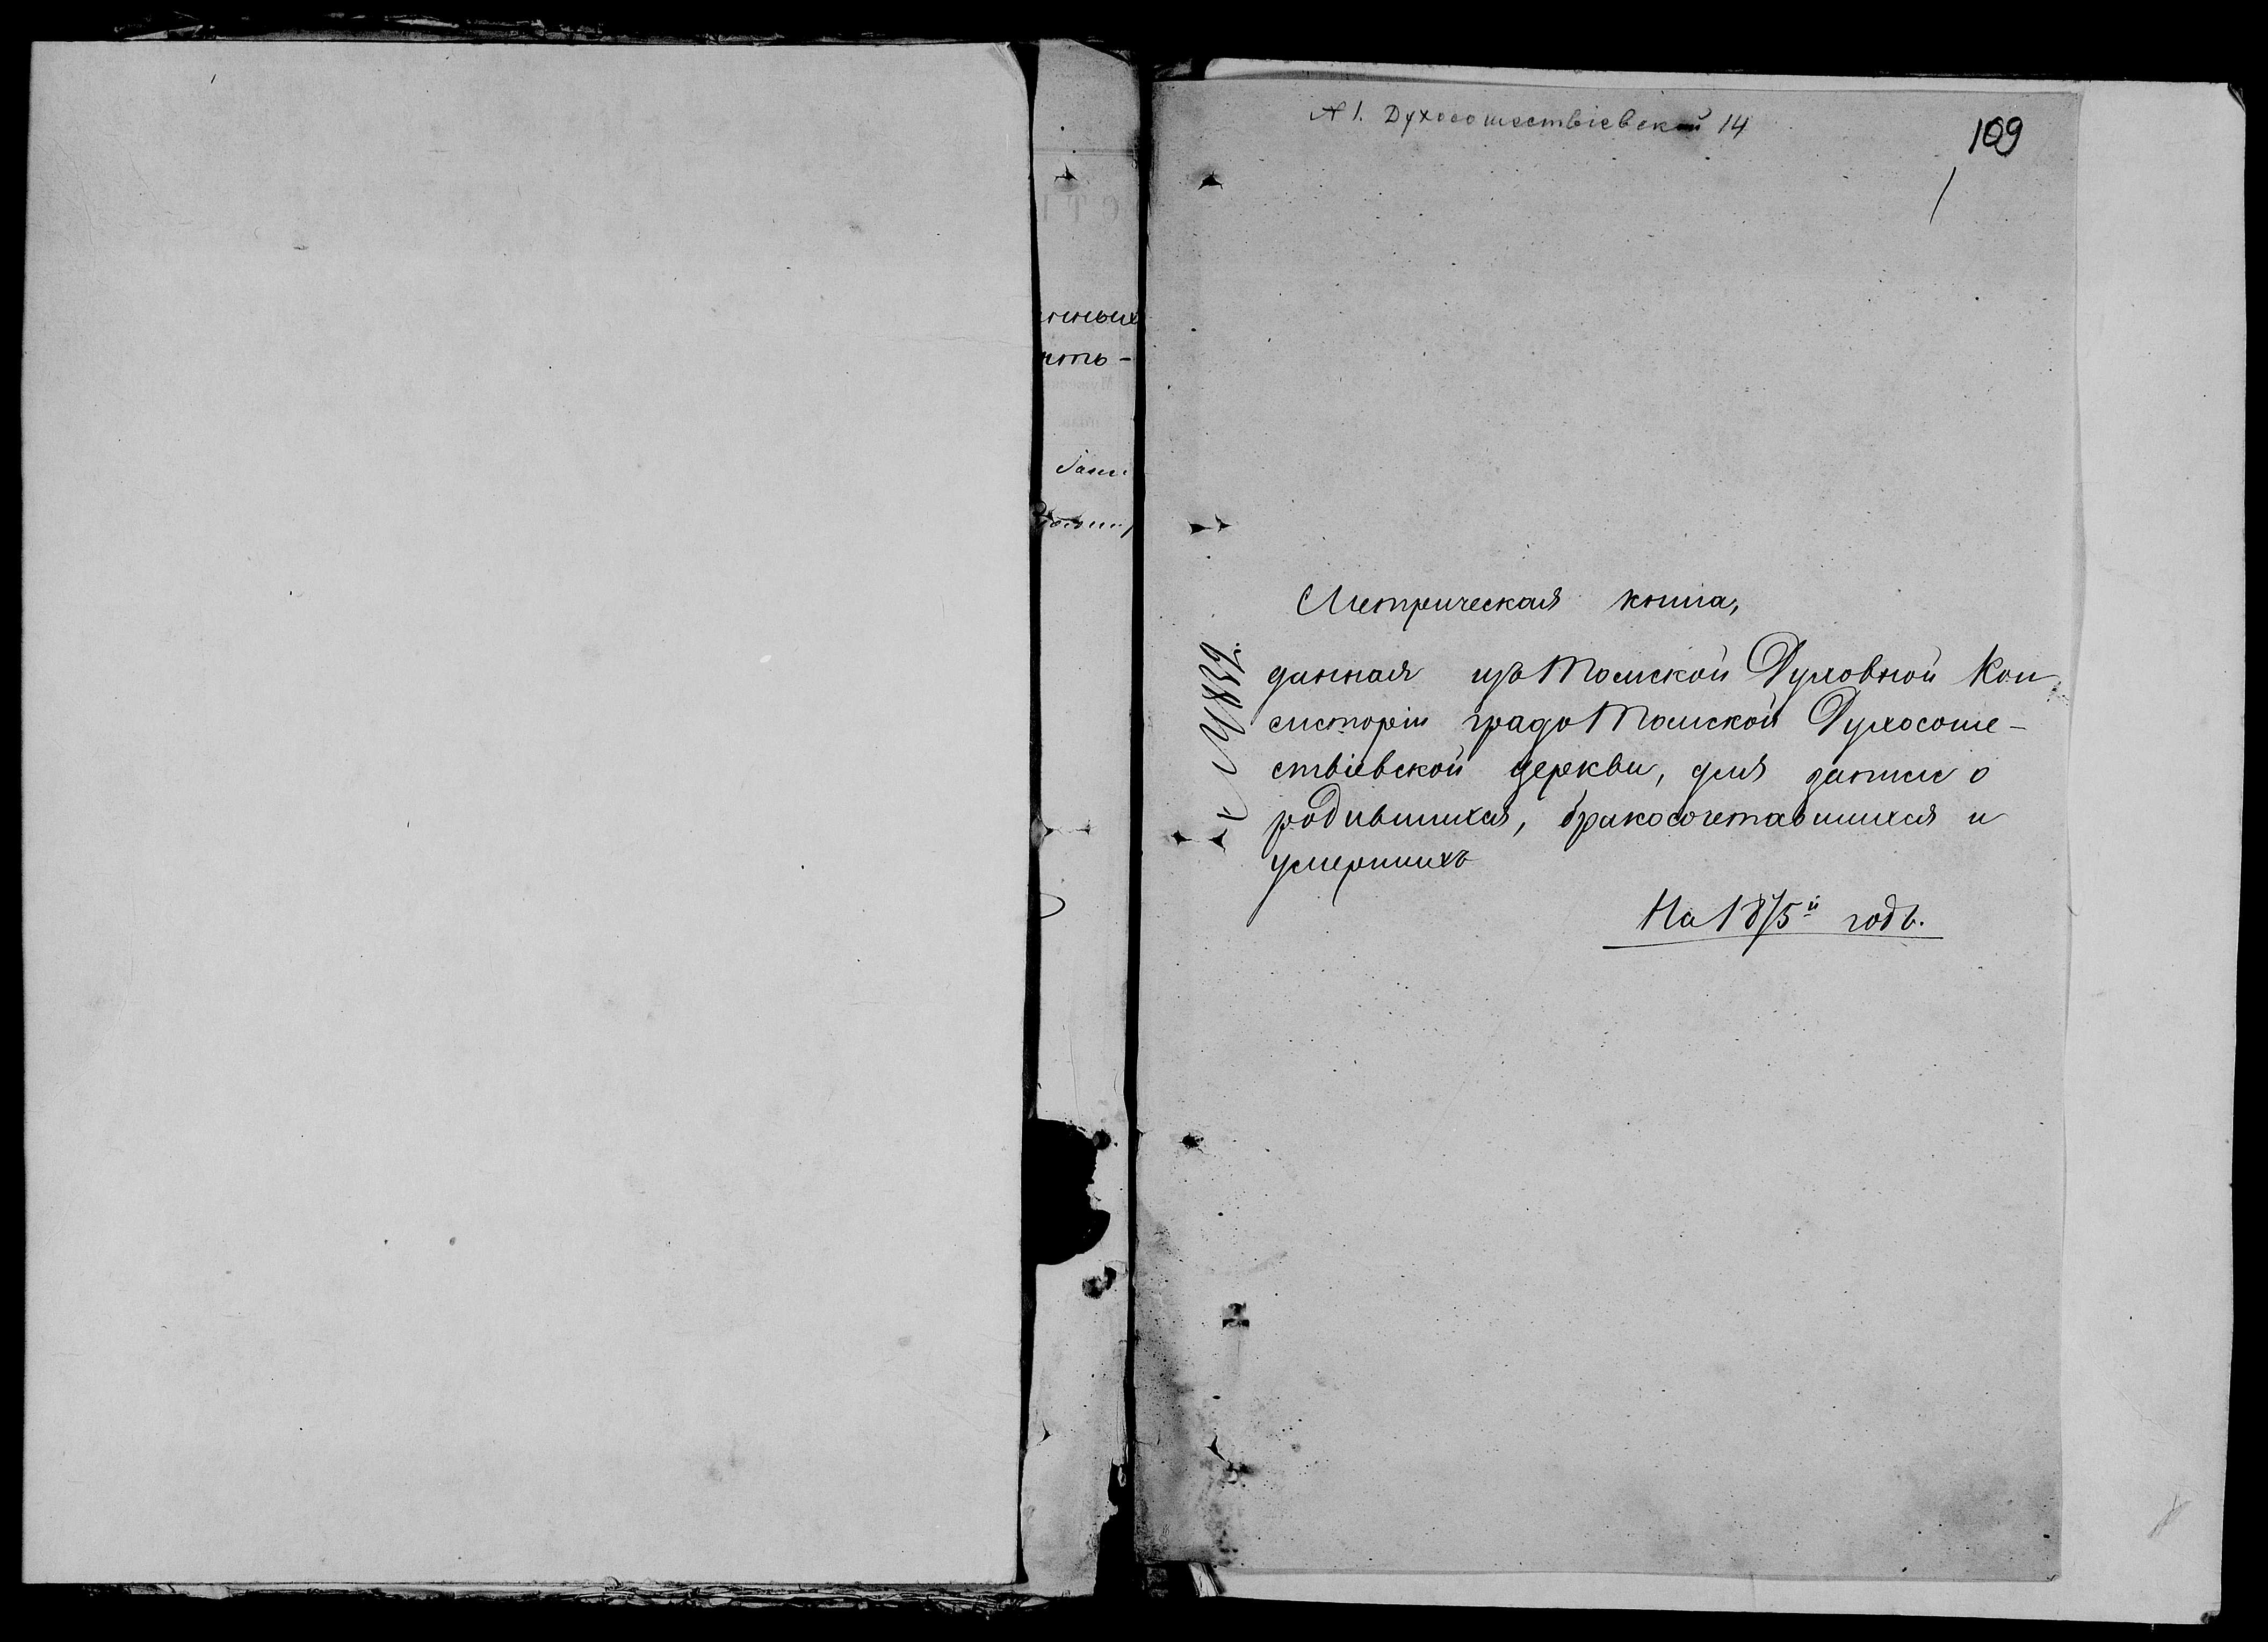 № 1. Духосошествіевской 14
109
1
нныхъ
Метрическая книга,
данная изъ Томской Духовной Кон
систоріи градо Томской Духосоше-
ствіевской церкви, для записи о
родившихся, бракосочетавшихся и
умершихъ
На 1875й годъ.